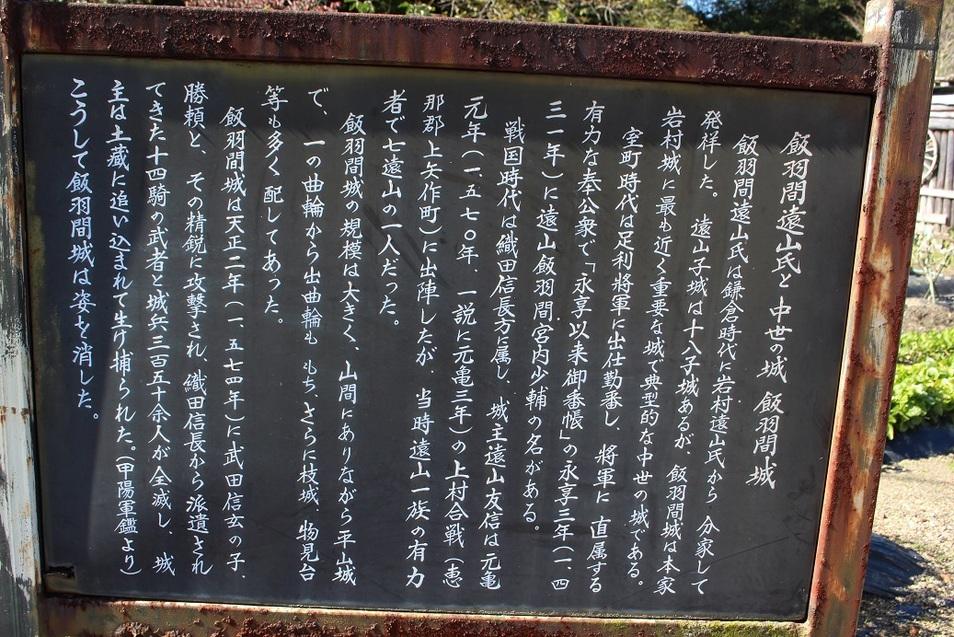 飯羽間遠山氏と中世の城 飯羽間城
飯羽間遠山氏は鎌倉時代に岩村遠山氏から 分家して
発祥した。 遠山子城は十八子城あるが、 飯羽間城は本家
岩村城に最も近く重要な城で典型的な中世の城である。
室町時代は足利将軍に出仕勤番し、 将軍に 直属する
有力な奉公衆で「永享以来御番帳」の永享三年(一、四
三一年)に遠山飯羽間宮内少輔の名がある。
戦国時代は織田信長方に属し、 城主遠山友信は元亀
元年(一、五七〇年、一説に元亀三年)の上村合戦(恵
那郡上矢作町)に出陣したが 当時遠山一族の有力
者で七遠山の一人だった。
飯羽間城の規模は大きく、山間にありながら平山城
で、 一の曲輪から出曲輪も もち、さらに枝城、物見台
等も多く 配してあった。
飯羽間城は天正二年(一、五七四年)に武田信玄の子、
勝頼と、その精鋭に攻撃され、織田信長から派遣され
てきた十四騎の武者と城兵三百五十余人が全滅し、 城
主は土蔵に追い込まれて生け捕られた。(甲陽軍鑑より)
こうして飯羽間城は姿を消した。